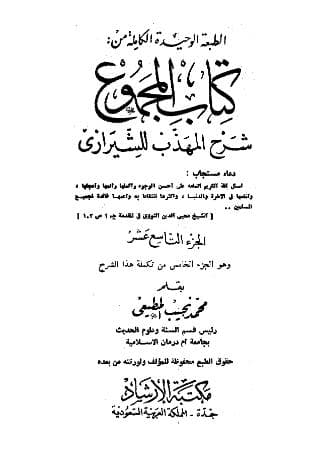 الطبعة الوحيدة الكاملة من :
كتاب المجموع
شرح المهذب للشيرازي
دعاء مستجاب :
اسأل الله الكريم اتمامه على أحسن الوجوه وأكملها وأتمها وأعجلها ،
وأنفعها في الآخرة والدنيا ، وأكثرها انتفاعا به وأعمها فائدة لجميع
المسلمين ..
[ الشيخ محيى الدين النووى فى المقدمة ج ١ ص ١٠٢ ]
الجزء التاسع عشر
وهو الجزء الخامس من تكملة هذا الشرح
بقلم
محمد نجيب المطيعي
رئيس قسم السنة وعلوم الحديث
بجامعة أم درمان الاسلامية
حقوق الطبع محفوظة للمؤلف ولورثته من بعده
مكتبة الإرشاد
جدة - المملكة العربية السعودية